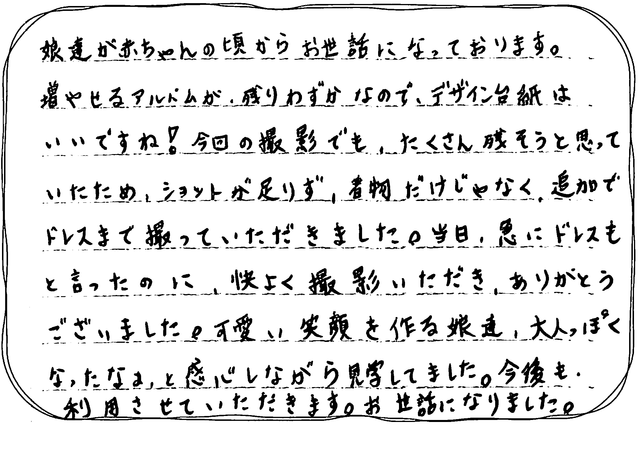 娘達が赤ちゃんの頃からお世話になっております。
増やせるアルバムが、残りわずかなので、デザイン台紙は
いいですね!今回の撮影でも、たくさん残そうと思って
いたため、ショットが足りず、着物だけじゃなく、追加で
ドレスまで撮っていただきました。当日、急にドレスも
と言ったのに、快よく撮影いただき、ありがとう
ございました。可愛い笑顔を作る娘達、大人っぽく
なったなぁ、と感心しながら見学してました。今後も、
利用させていただきます。お世話になりました。